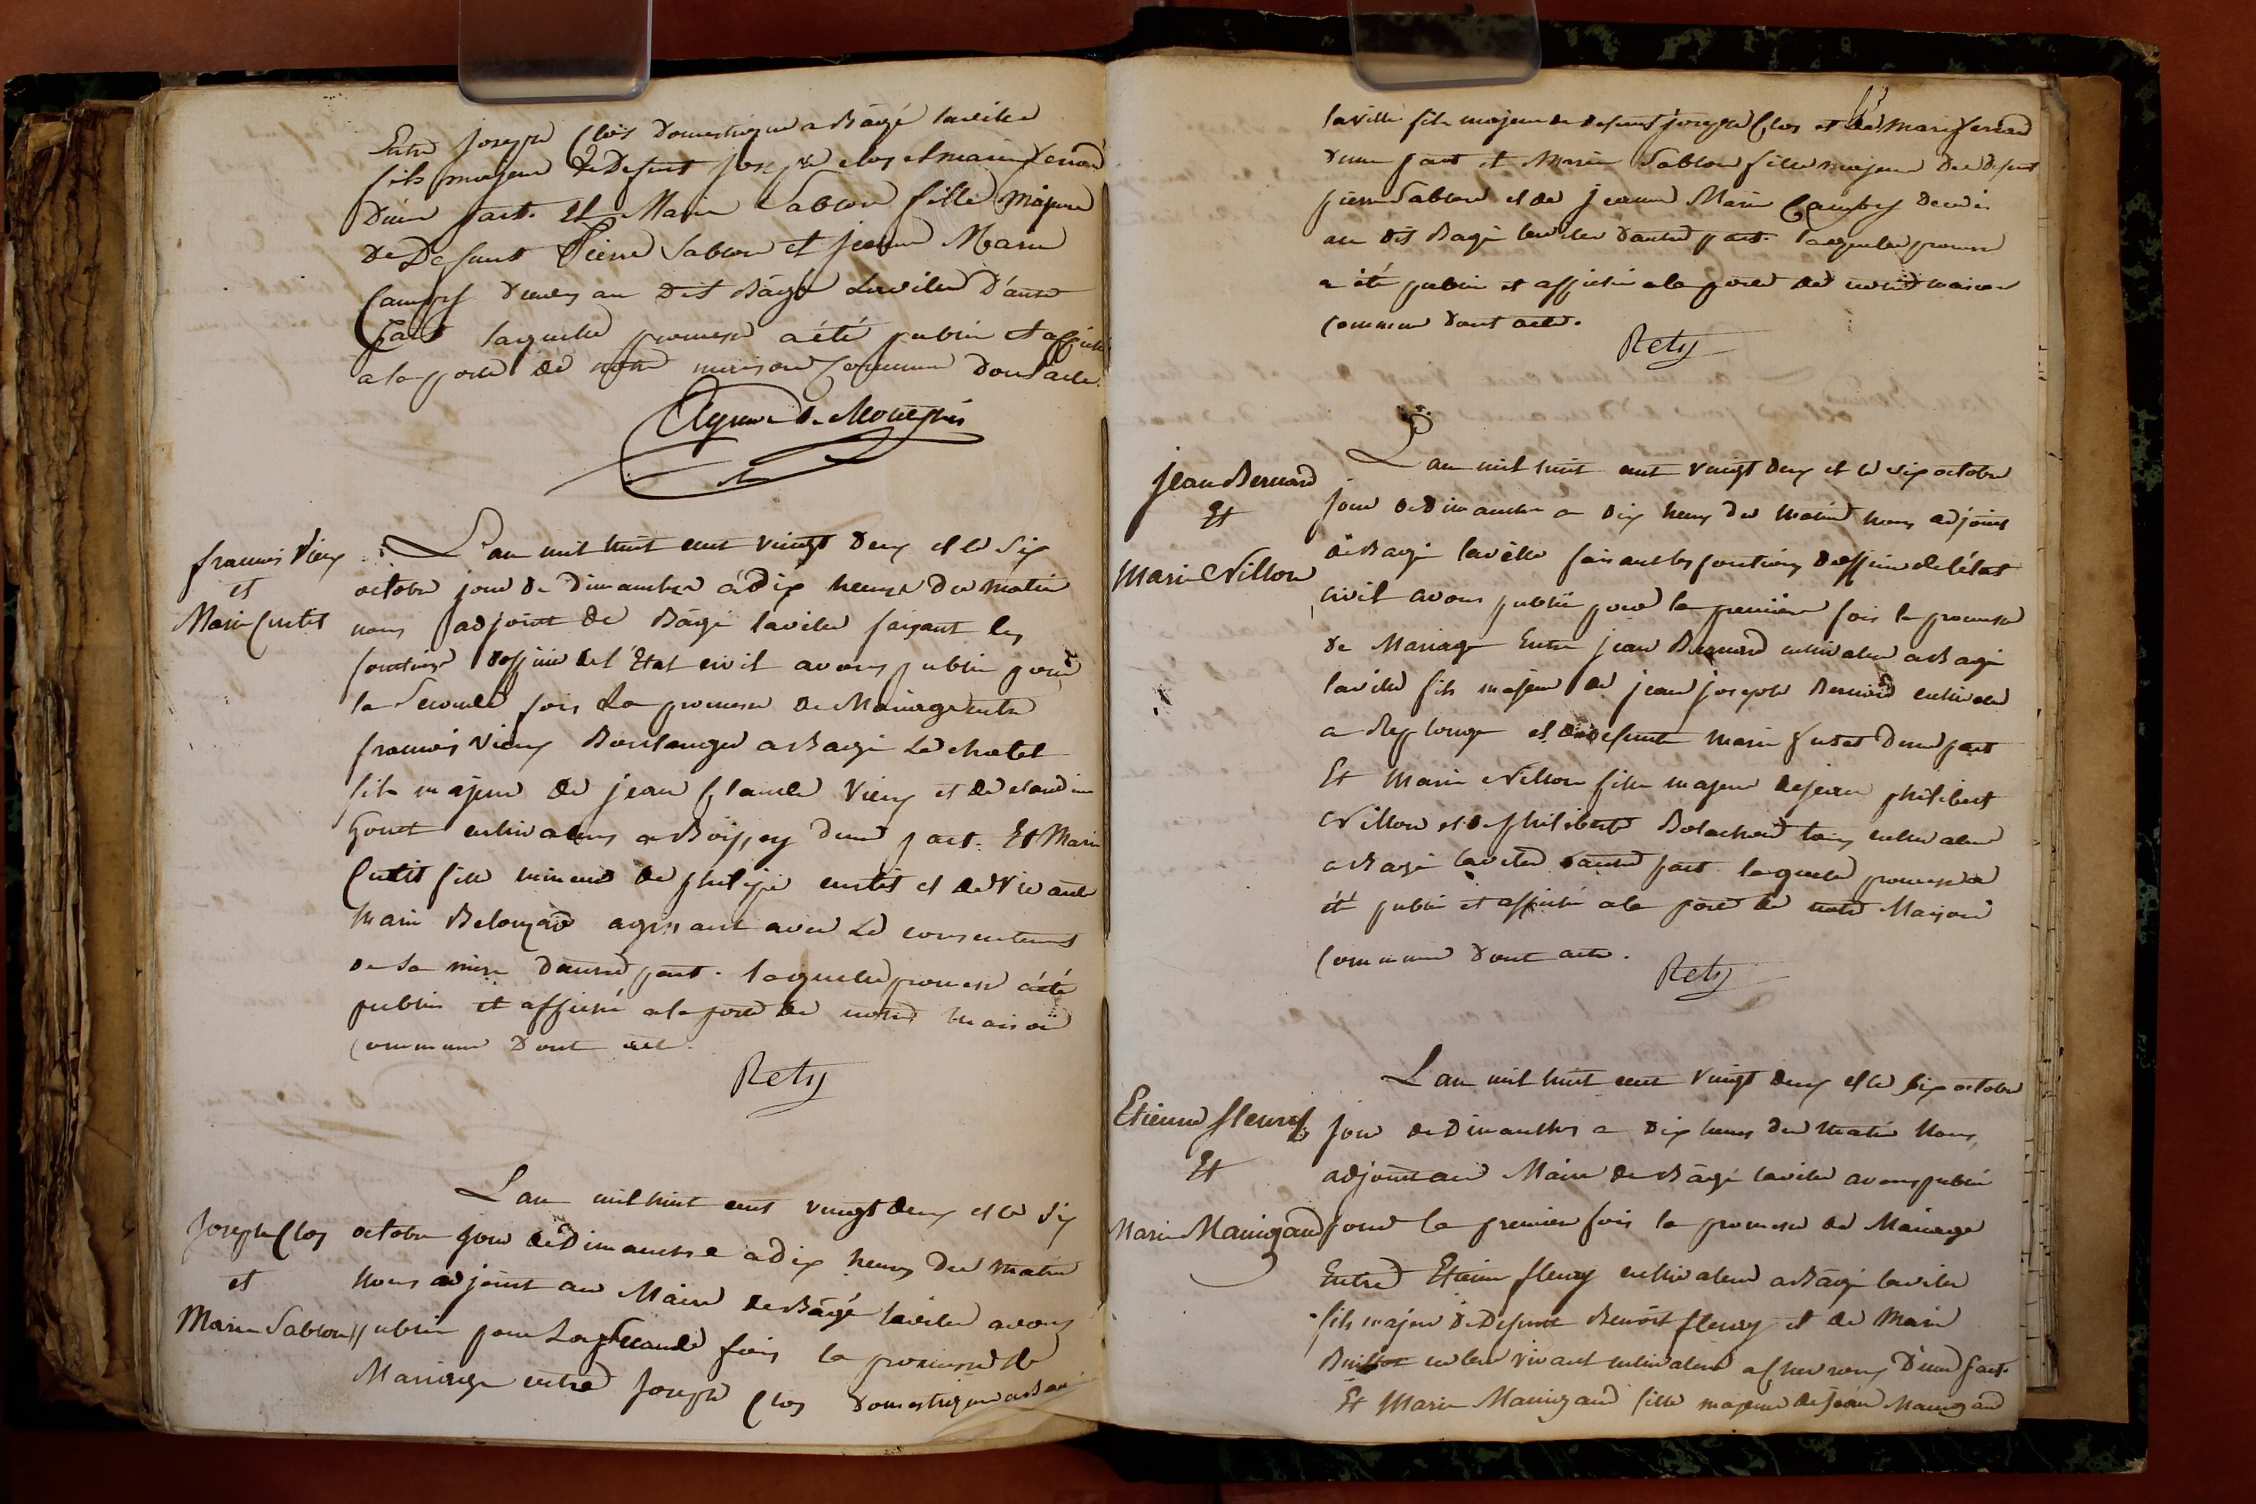 Entre Joseph Clos Domestique a Bâgé laville
fils majeur de Defunt Joseph clos et marie ferrand
D'une part. Et Marie Sablon fille Majeure
De Defunt Pierre Sablon et jeanne Marie
au Dit Bâgé Laville D'autre
Part laquelle promesse a été publiée et affiché
a la porte de notre maison Commune Dont acte.
francois Vieux
et
Marie Curtit
L'an mil huit cent vingt deux et le six
octobre jour de dimanche à dix heures du matin
nous adjoint de Bâgé laville faisant les
fonctions d'officier de l'Etat civil avons publié pour
la Seconde fois La promesse de Mariage entre
francois Vieux Boulanger a Bagé Le chatel
fils majeur de jean Claude Vieux et de claudine
Gout cultivateurs a Boissey d'une part. Et Marie
Curtit fille mineure de philipe curtit et de vivante
Marie agissant avec Le consentement
de Sa mère d'autre part. laquelle promesse a été
publiée et affiché a la porte de notre Maison
Commune Dont acte.
Rety
Joseph Clos
et
Marie Sablon
L'an mil huit cent vingt deux et le Six
octobre jour de Dimanche à dix heures du matin
Nous adjoint au Maire de Bâgé laville avons
publié pour La Seconde fois la promesse de
Mariage entre Joseph Clos domestique a Bagé
laville fils majeur de defunt joseph Clos et de marie ferrand
d'une part et Marie Sablon fille majeure de defunt
pierre Sablon et de jeanne Marie
au dit Bagé laville d'autre part. laquelle promesse
a été publiée et affiché a la porte de notre maison
commune dont acte.
Rety
jean Bernard
Et
Marie Nillon
L'an mil huit cent vingt deux et le six octobre
jour de dimanche a dix heures du matin nous adjoint
de Bagé laville faisant les fonctions d'officier de l'état
civil avons publié pour la premiere fois la promesse
de Mariage Entre jean Bernard cultivateur a Bagé
laville fils majeur de jean joseph Bernard cultivateur
a Replonge et de defunte marie d'une part
Et Marie Nillon fille majeure de jean philibert
Nillon et de philiberte tous cultivateurs
a Bagé laville d'autre part laquelle promesse a
été publiée et affiché a la porte de notre Maison
Commune dont acte.
Rety
Etienne fleury
Et
Marie Maingaud
L'an mil huit cent vingt deux et le six octobre
jour de Dimanche a dix heures du matin Nous
adjoint au Maire de Bâgé laville avons publié
pour la premiere fois la promesse de Mariage
Entre Etienne fleury cultivateur a Bâgé laville
fils majeur de Defunt Benoit fleury et de Marie
vivant cultivateur a d'une part.
Et Marie Maingaud fille majeure de Jean Maingaud